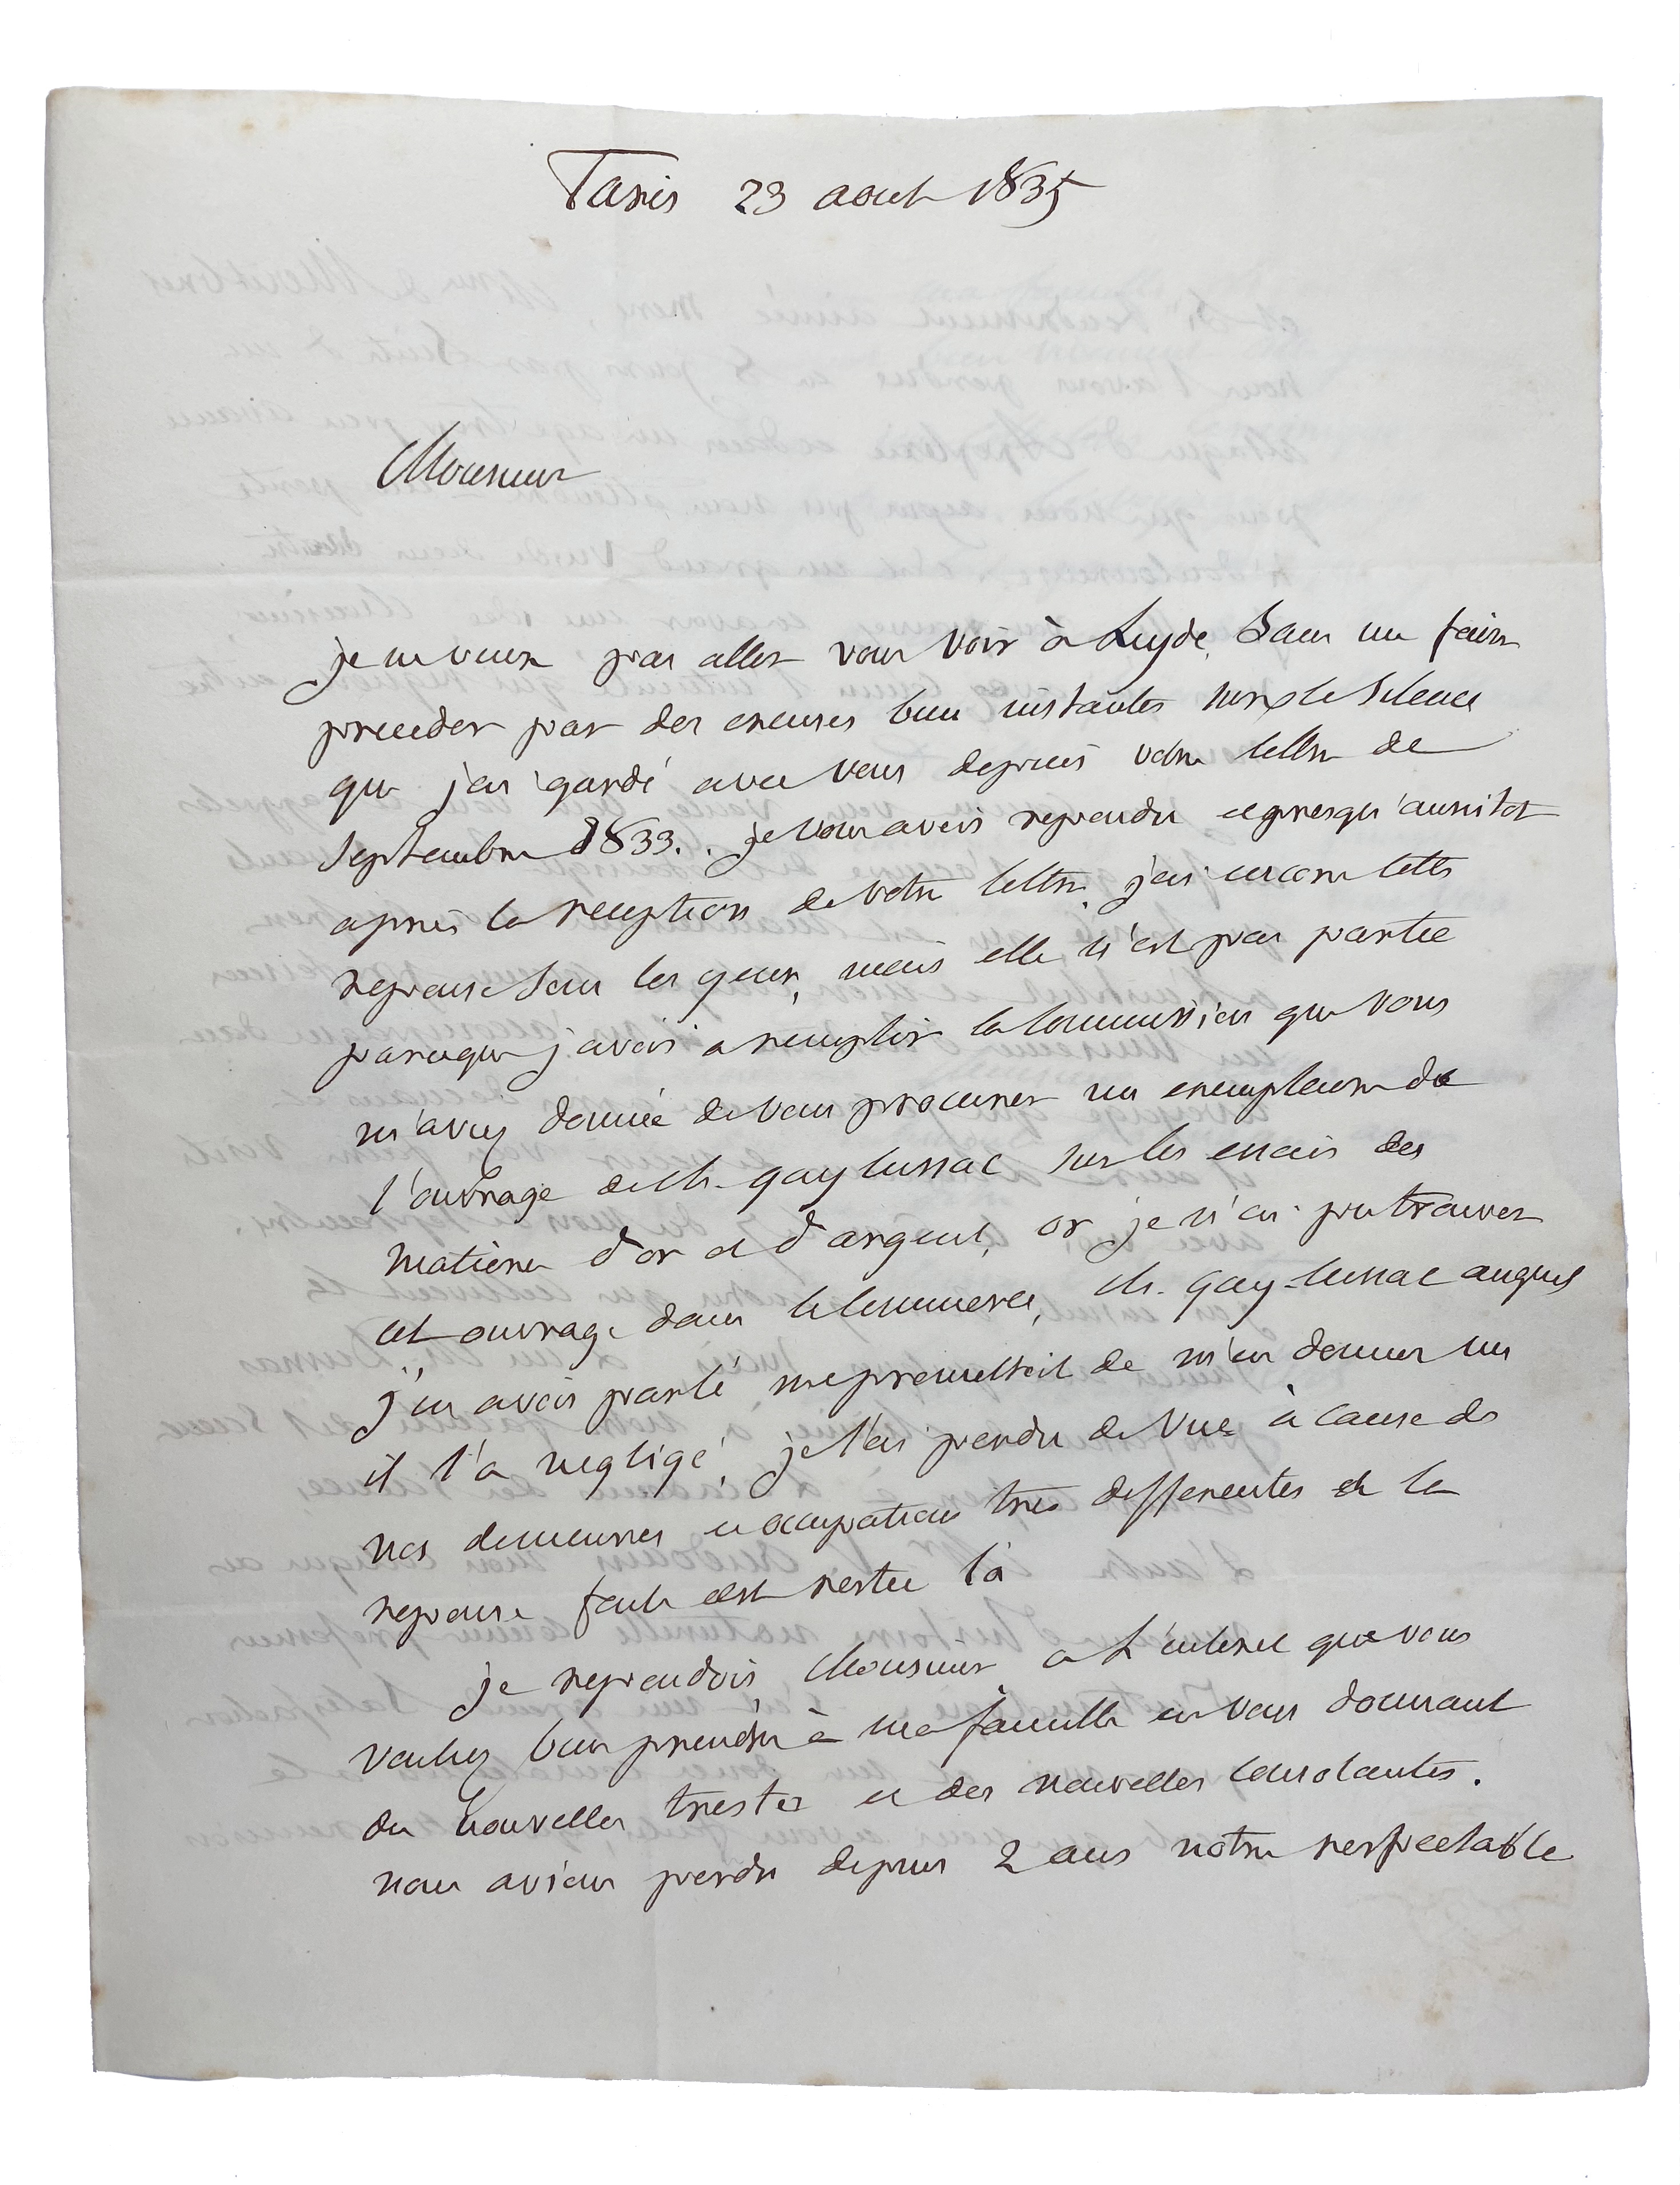 Paris 23 aout 1835
Monsieur
je ne veux pas aller vous voir à Leyde, Sans me faire
preceder par des excuses bien instantes sur le Silence
que j'ai gardé avec vous depuis votre lettre de
Septembre 1833. . je vous avois repondu presqu'aussitot
après la reception de votre lettre, j'ai encore cette
reponse Sous les yeux, mais elle n'est pas partie
parceque j'avois a remplir la Commission que vous
m'aviez donnée de vous procurer un exemplaire de
l'ouvrage de M. gay lussac sur les essais des
matieres d'or et d'argent, or je n'ai pu trouver
cet ouvrage dans le Commerce, M. gay-lussac auquel
j'en avois parlé me promettoit de m'en donner un
il l'a negligé, je l'ai perdu de Vue à Cause de
nos demeures et occupations tres differentes et la
reponse faite est restée là
je repondois, Monsieur a L'interet que vous
voulez bien prendre à ma famille en vous donnant
des nouvelles tristes et des nouvelles Consolantes.
nous avions perdu depuis 2 ans notre respectable